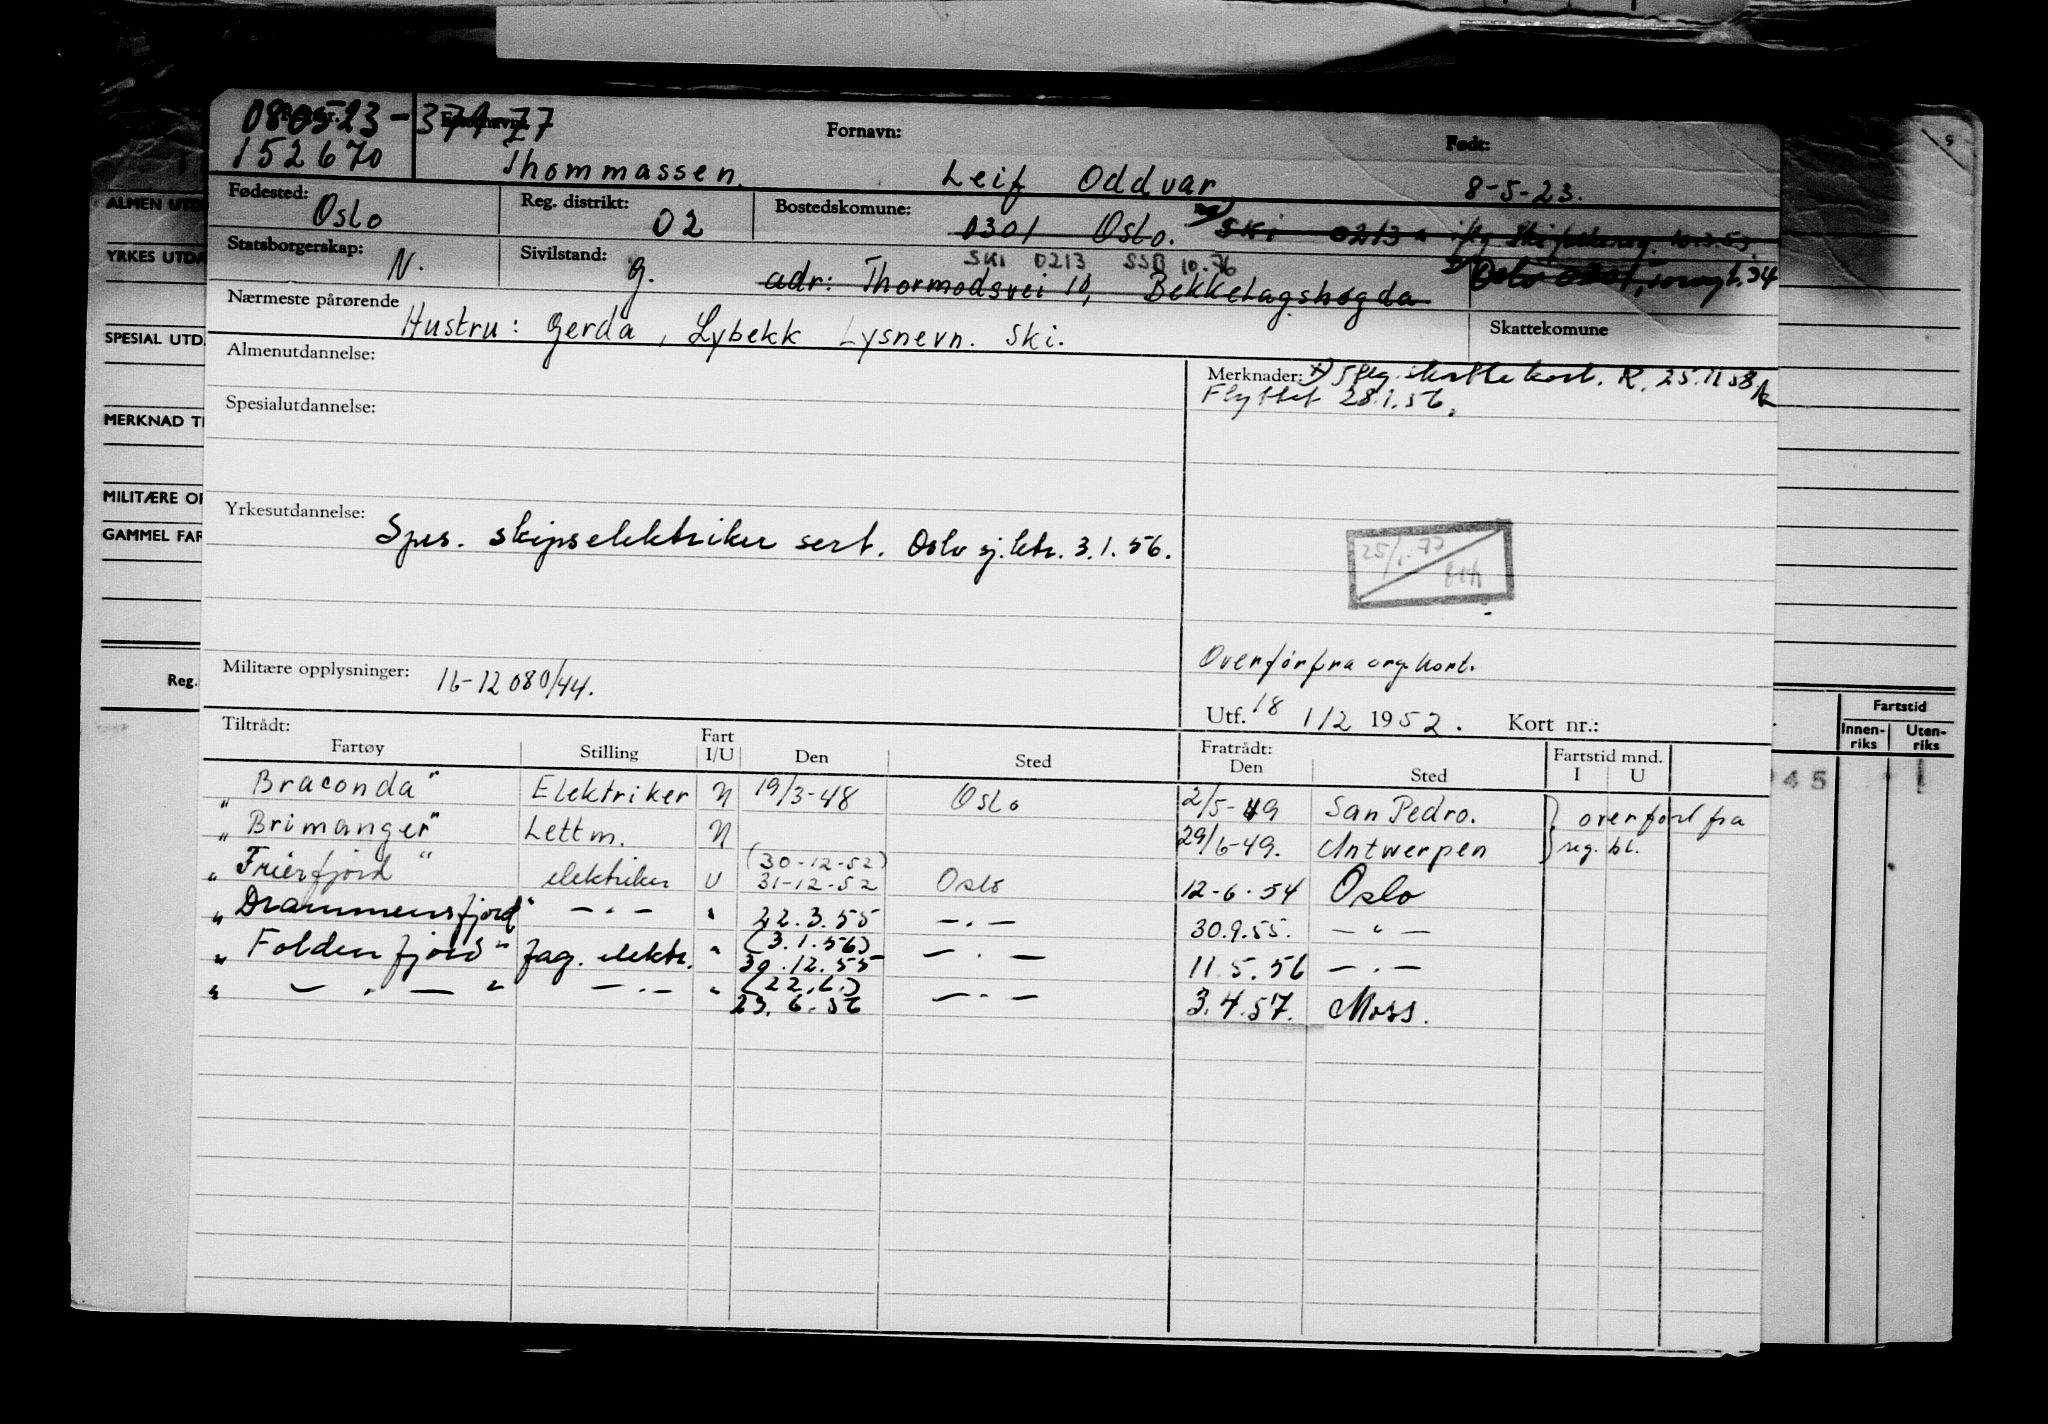 080523-
152670
Thommassen.
Fornavn:
Leif Oddvar
Født:
8-5-23.
Fødested:
Oslo
Reg. distrikt:
02
Bostedskomune:
0301 Oslo.
Ski 0213
Ski 0213 SSB 10.76
Statsborgerskap:
N.
Sivilstand:
g.
adr: Thormodsvei 10, Bekkelagshøgda
Nærmeste pårørende
Hustru: Gerda, Lybekk Lysnevn. Ski.
Skattekomune
Almenutdannelse:
Merknader: x) Iflg. skattekort. R. 25.11.58
Flyttet 28.1.56.
Spesialutdannelse:
Yrkesutdannelse:
Spes. skipselektriker sert. Oslo sj.ktr. 3.1.56.
25/1.77
Militære opplysninger:
16-12080/44.
Overført fra org.kort.
Utf. 18 /12 1952. Kort nr.:
Tiltrådt:
Fartøy
Stilling
Fart
I/U
Den
Sted
Fratrådt:
Den
Sted
Fartstid mnd.
I U
"Braconda" Elektriker N 19/3-48 Oslo 2/5-49 San Pedro. } overført fra
"Brimanger" Lettm. N 29/6-49. Antwerpen } reg. bl.
(30-12-52)
"Frierfjord" elektriker U 31-12-52 Oslo 12-6-54 Oslo
"Drammensfjord" — . — " 22.3.55 — . — 30.9.55. — " —
(3.1.56)
"Foldenfjord" fag. elektr. " 30.12.55 — . — 11.5.56 — . —
(22.6.)
" — . — " — . — " 23.6.56 — . — 3.4.57. Moss.
YRKES UTDA
SPESIAL UTDA
MERKNAD TI
MILITÆRE OP
GAMMEL FAR
Reg.
Fartstid
Innen-
riks
Uten-
riks
945